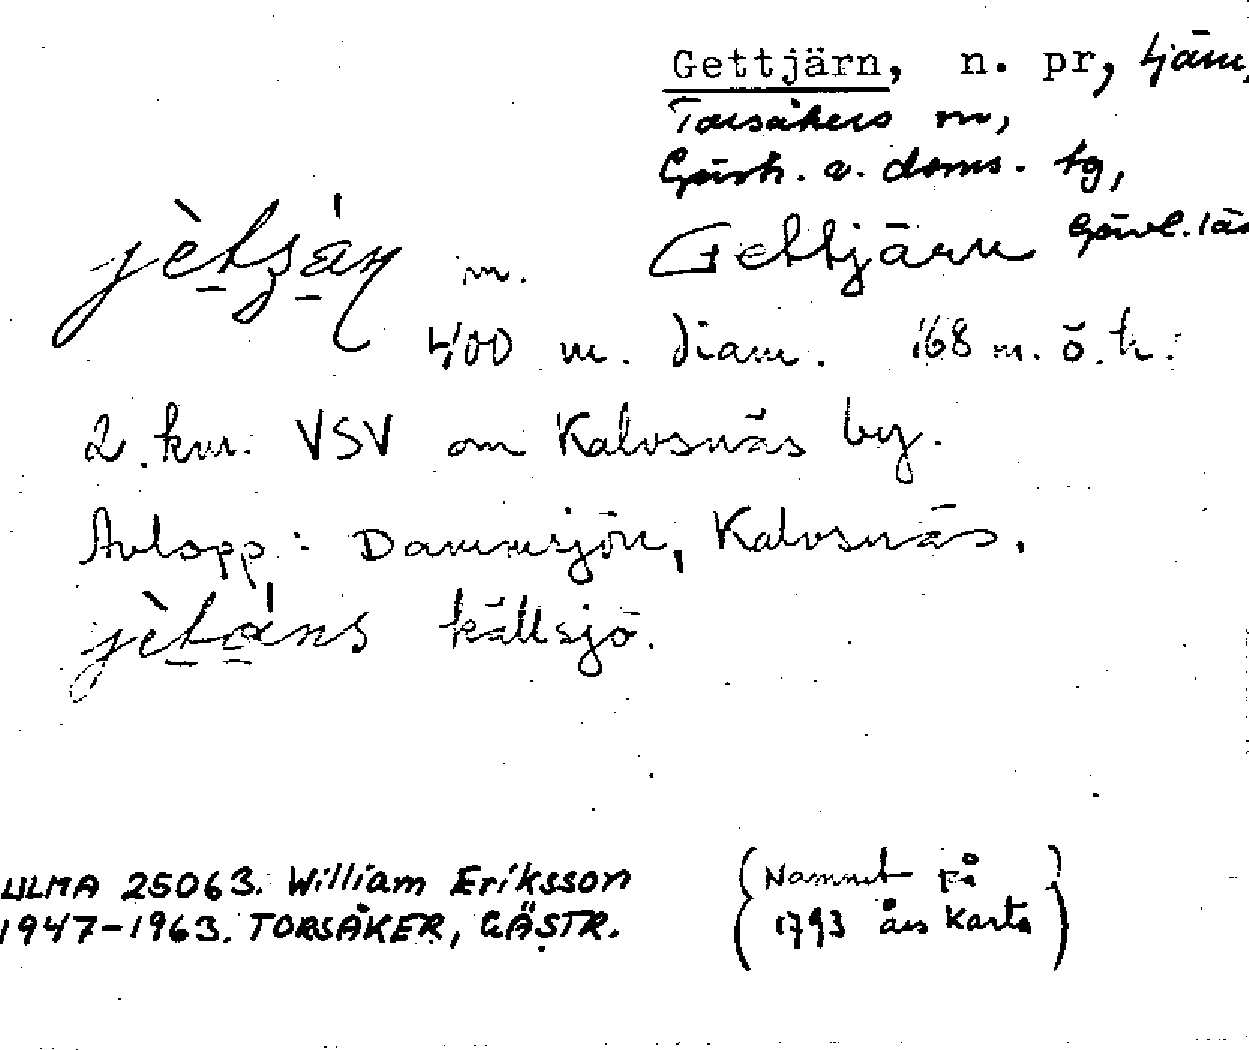 Gettjärn, n. pr, tjärn,
Torsåkers sn,
Gästr. v. doms. tg,
Gävl. län
jètsán m. Gettjärn
400 m. diam. 168 m. ö. h.
2 km. VSV om Kalvsnäs by.
Avlopp: Dammsjön, Kalvsnäs.
jètáns källsjö.
ULMA 25063. William Eriksson
1947-1963. TORSÅKER, GÄSTR.
(Namnet på
1793 års karta)